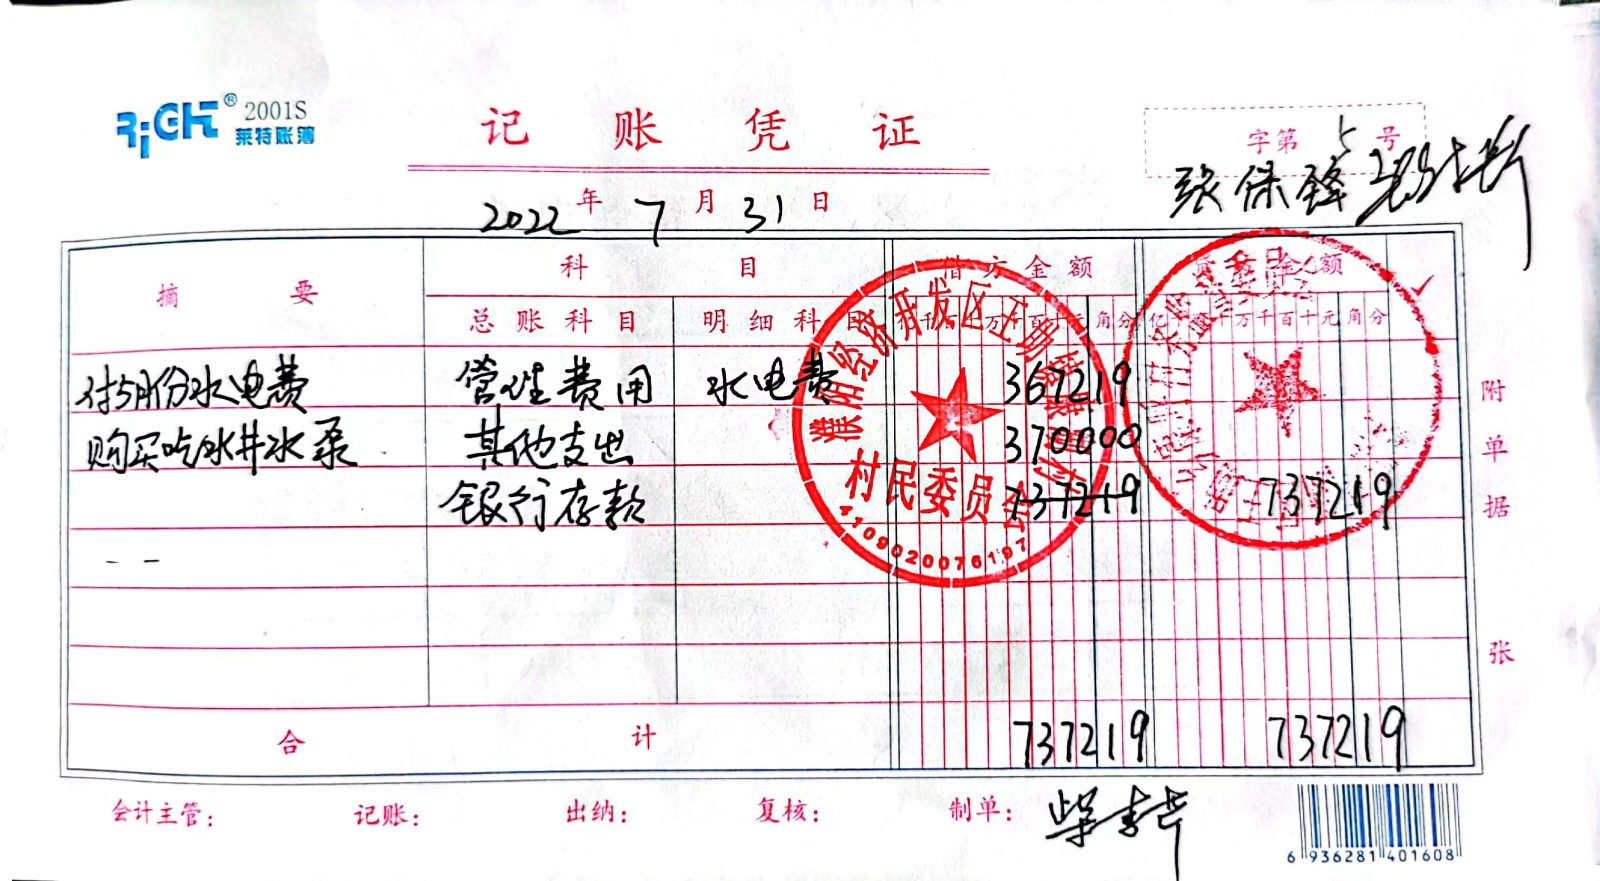 RiGHT® 2001S
莱特账簿
记账凭证
字第 5 号
张保锋
2022 年 7 月 31 日
摘要 科目 借方金额 贷方金额 ✓
总账科目 明细科目 千百十万千百十元角分 亿千百十万千百十元角分
付5月份水电费 管理费用 水电费 367219
购买吃水井水泵 其他支出 370000
银行存款 737219 737219
合计 737219 737219
附单据 张
濮阳经济开发区王助镇
村民委员会
4109020076197
会计主管: 记账: 出纳: 复核: 制单:
6 936281 401608